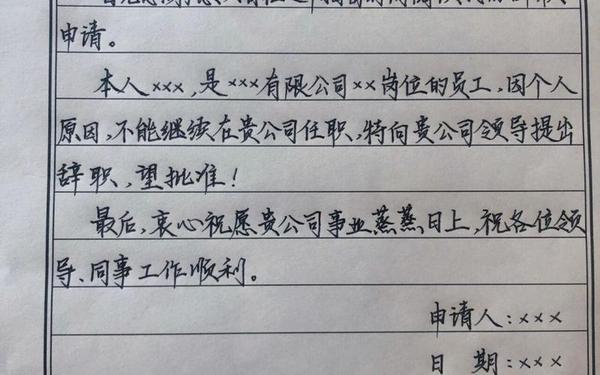 申请。
本人×××，是×××有限公司××岗位的员工，因个人
原因，不能继续在贵公司任职，特向贵公司领导提出
辞职，望批准！
最后，衷心祝愿贵公司事业蒸蒸日上，祝各位领
导、同事工作顺利。
申请人：×××
日 期：×××